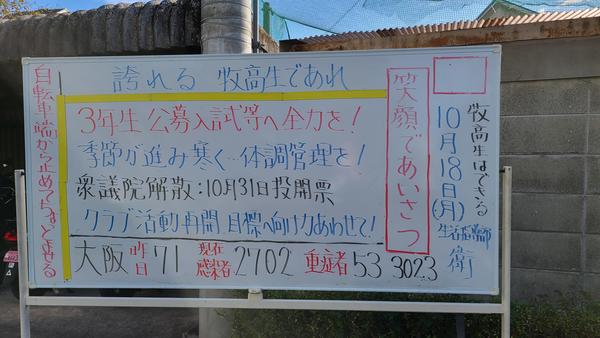 誇れる 牧高生であれ
3年生公募入試等へ全力を!
季節が進み寒く…体調管理を!
衆議院解散:10月31日投開票
クラブ活動再開、目標へ向け力あわせて!
大阪 昨日 71 現在感染者 2702 重症者 53 3023
笑顔であいさつ
牧高生はできる
10月18日(月)
生活指導部 衛
自転車端から止めて